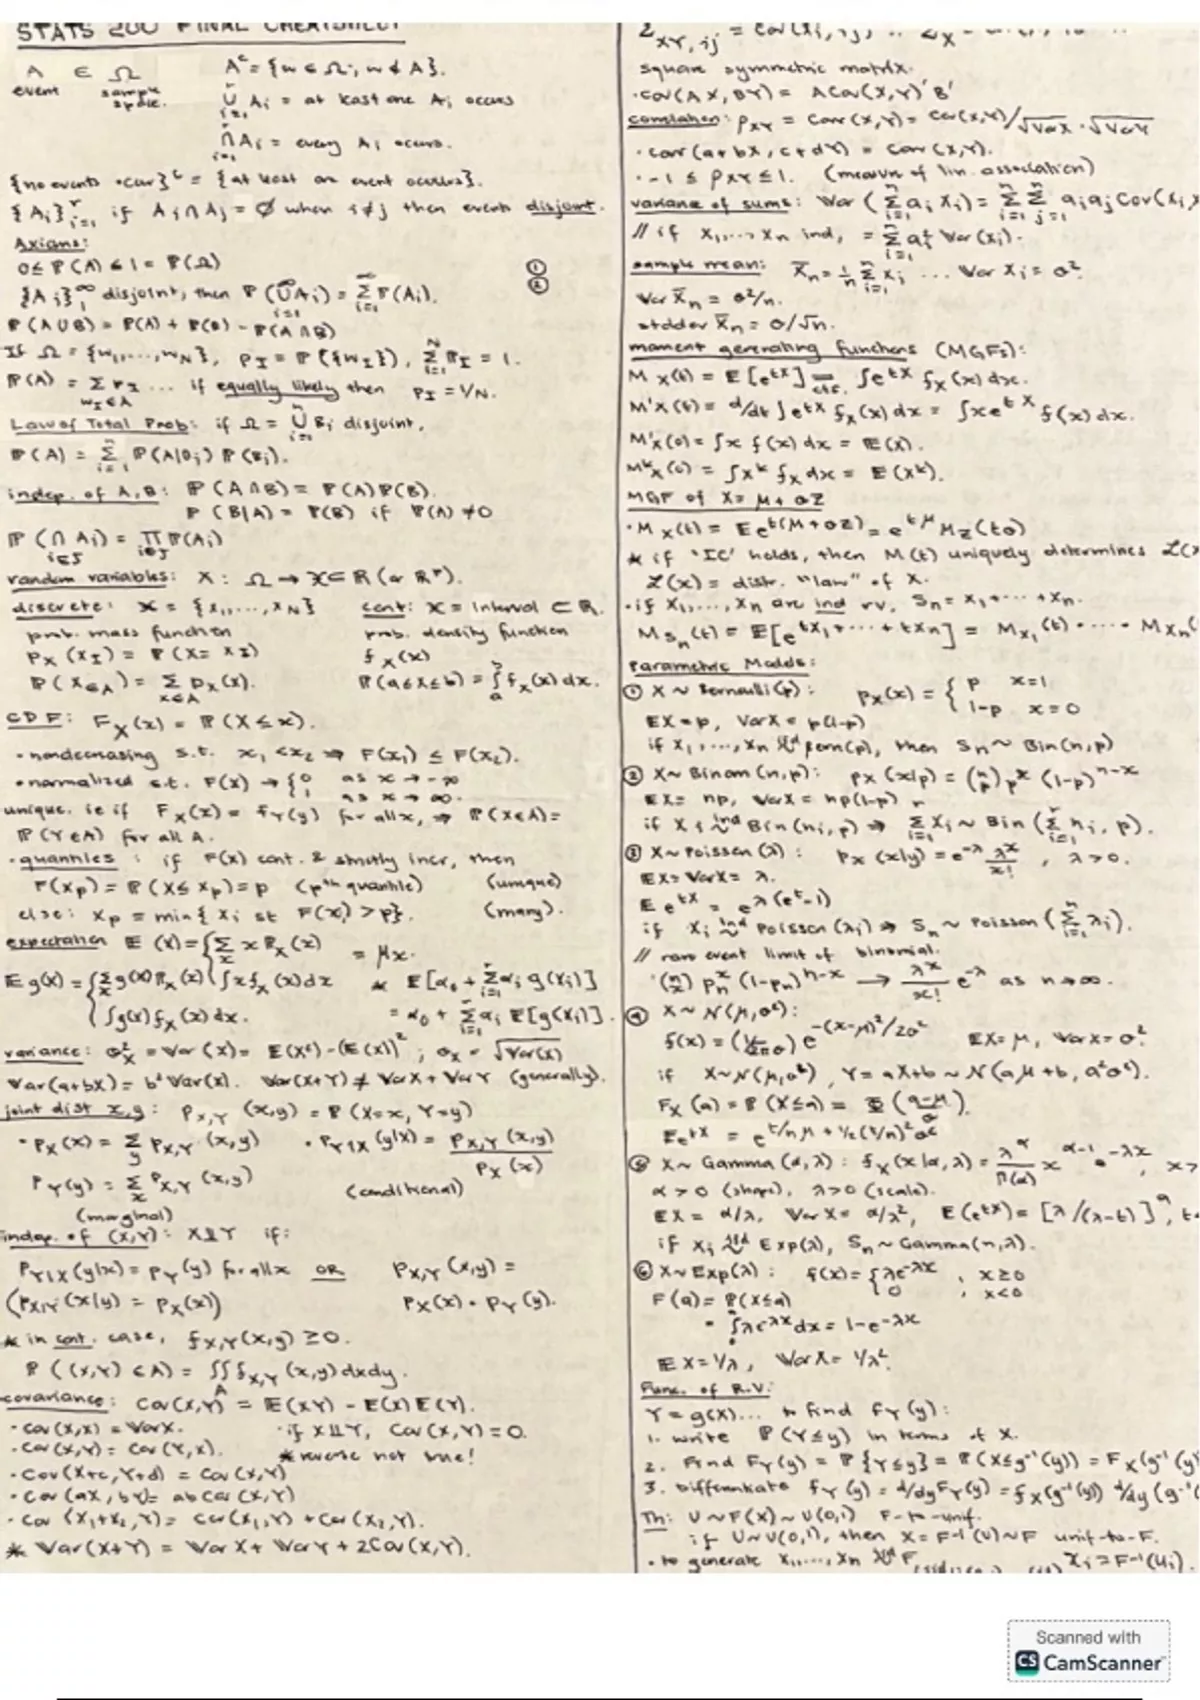 STATS 200 FINAL CHEATSHEET
A ∈ Ω
event sample space.
A^c = {w ∈ Ω; w ∉ A}.
∪_{i=1}^n A_i = at least one A_i occurs
∩_{i=1}^n A_i = every A_i occurs.
{no events occur}^c = {at least one event occurs}.
{A_i}_{i=1}^r if A_i ∩ A_j = ∅ when i≠j then events disjoint.
Axioms:
0 ≤ P(A) ≤ 1 = P(Ω) ①
{A_i}_1^∞ disjoint, then P(∪_{i=1}^∞ A_i) = Σ_{i=1}^∞ P(A_i). ②
P(A∪B) = P(A) + P(B) - P(A∩B)
If Ω = {w_1,...,w_N}, P_I = P({w_I}), Σ^N P_I = 1.
P(A) = Σ_{w_I∈A} P_I ... if equally likely then P_I = 1/N.
Law of Total Prob: if Ω = ∪_{i=1}^n B_i disjoint,
P(A) = Σ_{i=1}^n P(A|B_i) P(B_i).
indep. of A,B: P(A∩B) = P(A)P(B).
P(B|A) = P(B) if P(A) ≠ 0
P(∩_{i∈J} A_i) = Π_{i∈J} P(A_i)
random variables: X: Ω → X ⊂ R (or R^r).
discrete: X = {x_1,...,x_N} cont: X = interval ⊂ R.
prob. mass function prob. density function
p_X(x_I) = P(X = x_I) f_X(x)
P(X∈A) = Σ_{x∈A} p_X(x). P(a≤X≤b) = ∫_a^b f_X(x) dx.
CDF: F_X(x) = P(X≤x).
• nondecreasing s.t. x_1 < x_2 ⇒ F(x_1) ≤ F(x_2).
• normalized s.t. F(x) → {0 as x → -∞
1 as x → ∞.
unique. ie if F_X(x) = F_Y(y) for all x, ⇒ P(X∈A) =
P(Y∈A) for all A.
• quantiles: if F(x) cont. & strictly incr, then
F(x_p) = P(X≤x_p) = p (p^th quantile) (unique)
else: x_p = min{x_i st F(x_i) > p}. (many).
expectation E(X) = {Σ_x x P_X(x)
∫x f_X(x) dx = μ_X.
E g(X) = {Σ_x g(x) P_X(x) * E[α_0 + Σ_{i=1}^r α_i g(X_i)]
∫g(x) f_X(x) dx. = α_0 + Σ_{i=1}^r α_i E[g(X_i)].
variance: σ_X^2 = Var(X) = E(X^2) - (E(X))^2; σ_X = √Var(X)
Var(a+bX) = b^2 Var(X). Var(X+Y) ≠ VarX + VarY (generally).
joint dist x,y: P_{X,Y}(x,y) = P(X=x, Y=y)
• P_X(x) = Σ_y P_{X,Y}(x,y) • P_{Y|X}(y|x) = P_{X,Y}(x,y) / P_X(x)
P_Y(y) = Σ_x P_{X,Y}(x,y) (conditional)
(marginal)
indep. of (X,Y): X⫫Y if:
P_{Y|X}(y|x) = P_Y(y) for all x OR P_{X,Y}(x,y) =
(P_{X|Y}(x|y) = P_X(x)) P_X(x) · P_Y(y).
* in cont. case, f_{X,Y}(x,y) ≥ 0.
P((X,Y) ∈ A) = ∫∫_A f_{X,Y}(x,y) dx dy.
covariance: Cov(X,Y) = E(XY) - E(X)E(Y).
• Cov(X,X) = VarX. • if X⫫Y, Cov(X,Y) = 0.
• Cov(X,Y) = Cov(Y,X). * reverse not true!
• Cov(X+c, Y+d) = Cov(X,Y)
• Cov(aX, bY) = ab Cov(X,Y)
• Cov(X_1+X_2, Y) = Cov(X_1,Y) + Cov(X_2,Y).
* Var(X+Y) = VarX + VarY + 2Cov(X,Y).
Σ_{XY,ij} = Cov(X_i, Y_j)
square symmetric matrix.
• Cov(AX, BY) = A Cov(X,Y) B'
correlation: ρ_{XY} = Corr(X,Y) = Cov(X,Y)/√VarX · √VarY
• corr(a+bX, c+dY) = Corr(X,Y).
• -1 ≤ ρ_{XY} ≤ 1. (measure of lin. association)
variance of sums: Var(Σ_{i=1}^n a_i X_i) = Σ_{i=1}^n Σ_{j=1}^n a_i a_j Cov(X_i, X
// if X_1,...,X_n ind, = Σ_{i=1}^n a_i^2 Var(X_i).
sample mean: X̄_n = 1/n Σ_{i=1}^n X_i ... Var X_i = σ^2.
Var X̄_n = σ^2/n.
stddev X̄_n = σ/√n.
moment generating functions (MGFs):
M_X(t) = E[e^{tX}] = ∫e^{tx} f_X(x) dx.
M'_X(t) = d/dt ∫e^{tx} f_X(x) dx = ∫xe^{tx} f(x) dx.
M'_X(0) = ∫x f(x) dx = E(X).
M^k_X(0) = ∫x^k f_X dx = E(X^k).
MGF of X = μ + σZ
• M_X(t) = E e^{t(μ+σZ)} = e^{tμ} M_Z(tσ)
* if 'IC' holds, then M(t) uniquely determines L(X
L(X) = distr. "law" of X.
• if X_1,...,X_n are ind rv, S_n = X_1 + ... + X_n.
M_{S_n}(t) = E[e^{tX_1 + ... + tX_n}] = M_{X_1}(t) ···· M_{X_n}(
Parametric Models:
① X ~ Bernoulli(p): p_X(x) = {p x=1
1-p x=0
EX = p, VarX = p(1-p)
if X_1,...,X_n iid Bern(p), then S_n ~ Bin(n,p)
② X ~ Binom(n,p): p_X(x|p) = (n p) p^x (1-p)^{n-x}
EX = np, VarX = np(1-p)
if X_i ~ind Bin(n_i, p) ⇒ Σ_{i=1}^r X_i ~ Bin(Σ_{i=1}^r n_i, p).
③ X ~ Poisson(λ): p_X(x|y) = e^{-λ} λ^x/x!, λ>0.
EX = VarX = λ.
E e^{tX} = e^{λ(e^t-1)}
if X_i ~ind Poisson(λ_i) ⇒ S_n ~ Poisson(Σ_{i=1}^n λ_i).
// rare event limit of binomial.
(n x) p_n^x (1-p_n)^{n-x} → λ^x/x! e^{-λ} as n→∞.
④ X ~ N(μ,σ^2):
f(x) = (1/√2πσ) e^{-(x-μ)^2/2σ^2} EX = μ, VarX = σ^2.
if X ~ N(μ,σ^2), Y = aX+b ~ N(aμ+b, a^2σ^2).
F_X(a) = P(X≤a) = Φ((a-μ)/σ).
E e^{tX} = e^{t/n μ + 1/2 (t/n)^2 σ^2}
⑤ X ~ Gamma(α,λ): f_X(x|α,λ) = λ^α/Γ(α) x^{α-1} e^{-λx}, x>
α>0 (shape), λ>0 (scale).
EX = α/λ, VarX = α/λ^2, E(e^{tX}) = [λ/(λ-t)]^α, t<
if X_i ~iid Exp(λ), S_n ~ Gamma(n,λ).
⑥ X ~ Exp(λ): f(x) = {λe^{-λx}, x≥0
0, x<0
F(a) = P(X≤a)
= ∫λe^{λx} dx = 1-e^{-λx}
EX = 1/λ, VarX = 1/λ^2.
Func. of R.V:
Y = g(X)... to find f_Y(y):
1. write P(Y≤y) in terms of X.
2. Find F_Y(y) = P{Y≤y} = P(X≤g^{-1}(y)) = F_X(g^{-1}(y)
3. Differentiate f_Y(y) = d/dy F_Y(y) = f_X(g^{-1}(y)) d/dy (g^{-1}(
Th: U ~ F(X) ~ U(0,1) F-to-unif.
if U ~ U(0,1), then X = F^{-1}(U) ~ F unif-to-F.
• to generate X_1,...,X_n iid F X_i = F^{-1}(U_i).
Scanned with
CS CamScanner